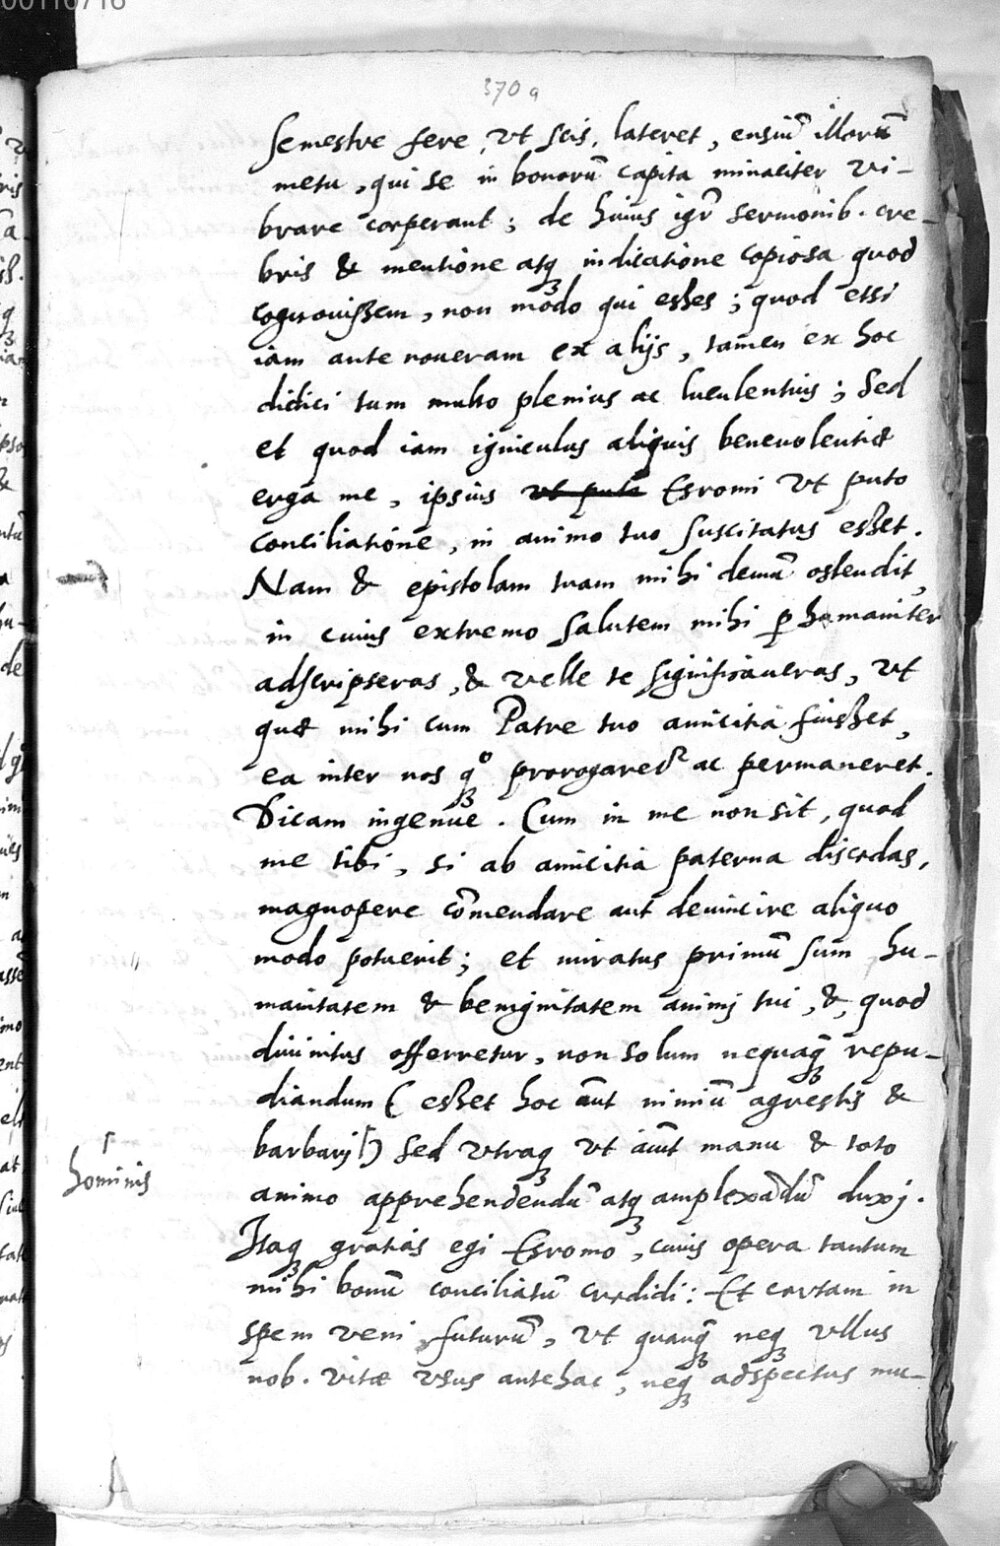 00110716
370 a
semestre fere, vt scis, lateret, ensiũ illorũ
metu, qui se in bonorũ capita minaciter vi-
brare coeperant; de huius igr̃ sermonib. cre-
bris & mentione atq₃ indicatione copiosa quod
cognovissem, non modo qui esses; quod etsi
iam ante noueram ex alijs, tam̃en ex hoc
didici tum multo plenius ac luculentius; Sed
et quod iam igniculus aliquis beneuolentiæ
erga me, ipsius vt puto Esromi vt puto
conciliatione, in animo tuo suscitatus esset.
Nam & epistolam tuam mihi demũ ostendit,
in cuius extremo salutem mihi ꝑhumaniter
adscripseras, & velle te significaueras, vt
quæ mihi cum Patre tuo amicitia fuisset,
ea inter nos q₃º prorogaretr̃ ac permaneret.
Dicam ingenue. Cum in me non sit, quod
me tibi, si ab amicitia paterna discedas,
magnopere cõmendare aut deuincire aliquo
modo potuerit; et miratus primũ sum hu-
manitatem & benignitatem animj tui, &, quod
diuinitus offerretur, non solum nequaq̃₃ repu-
diandum ( esset hoc aũt nimiũ agrestis &
barbarj⌈) sed vtraq₃ vt aiũt manu & toto
⌈ hominis
animo apprehendendũ atq₃ amplexãdũ duxj.
Itaq₃ gratias egi Esromo, cuius opera tantum
mihi bonũ conciliatũ credidi: Et certam in
spem veni, futurũ, vt quanq̃₃ neq₃ vllus
nob. vitæ vsus antehac, neq₃ adspectus mu-